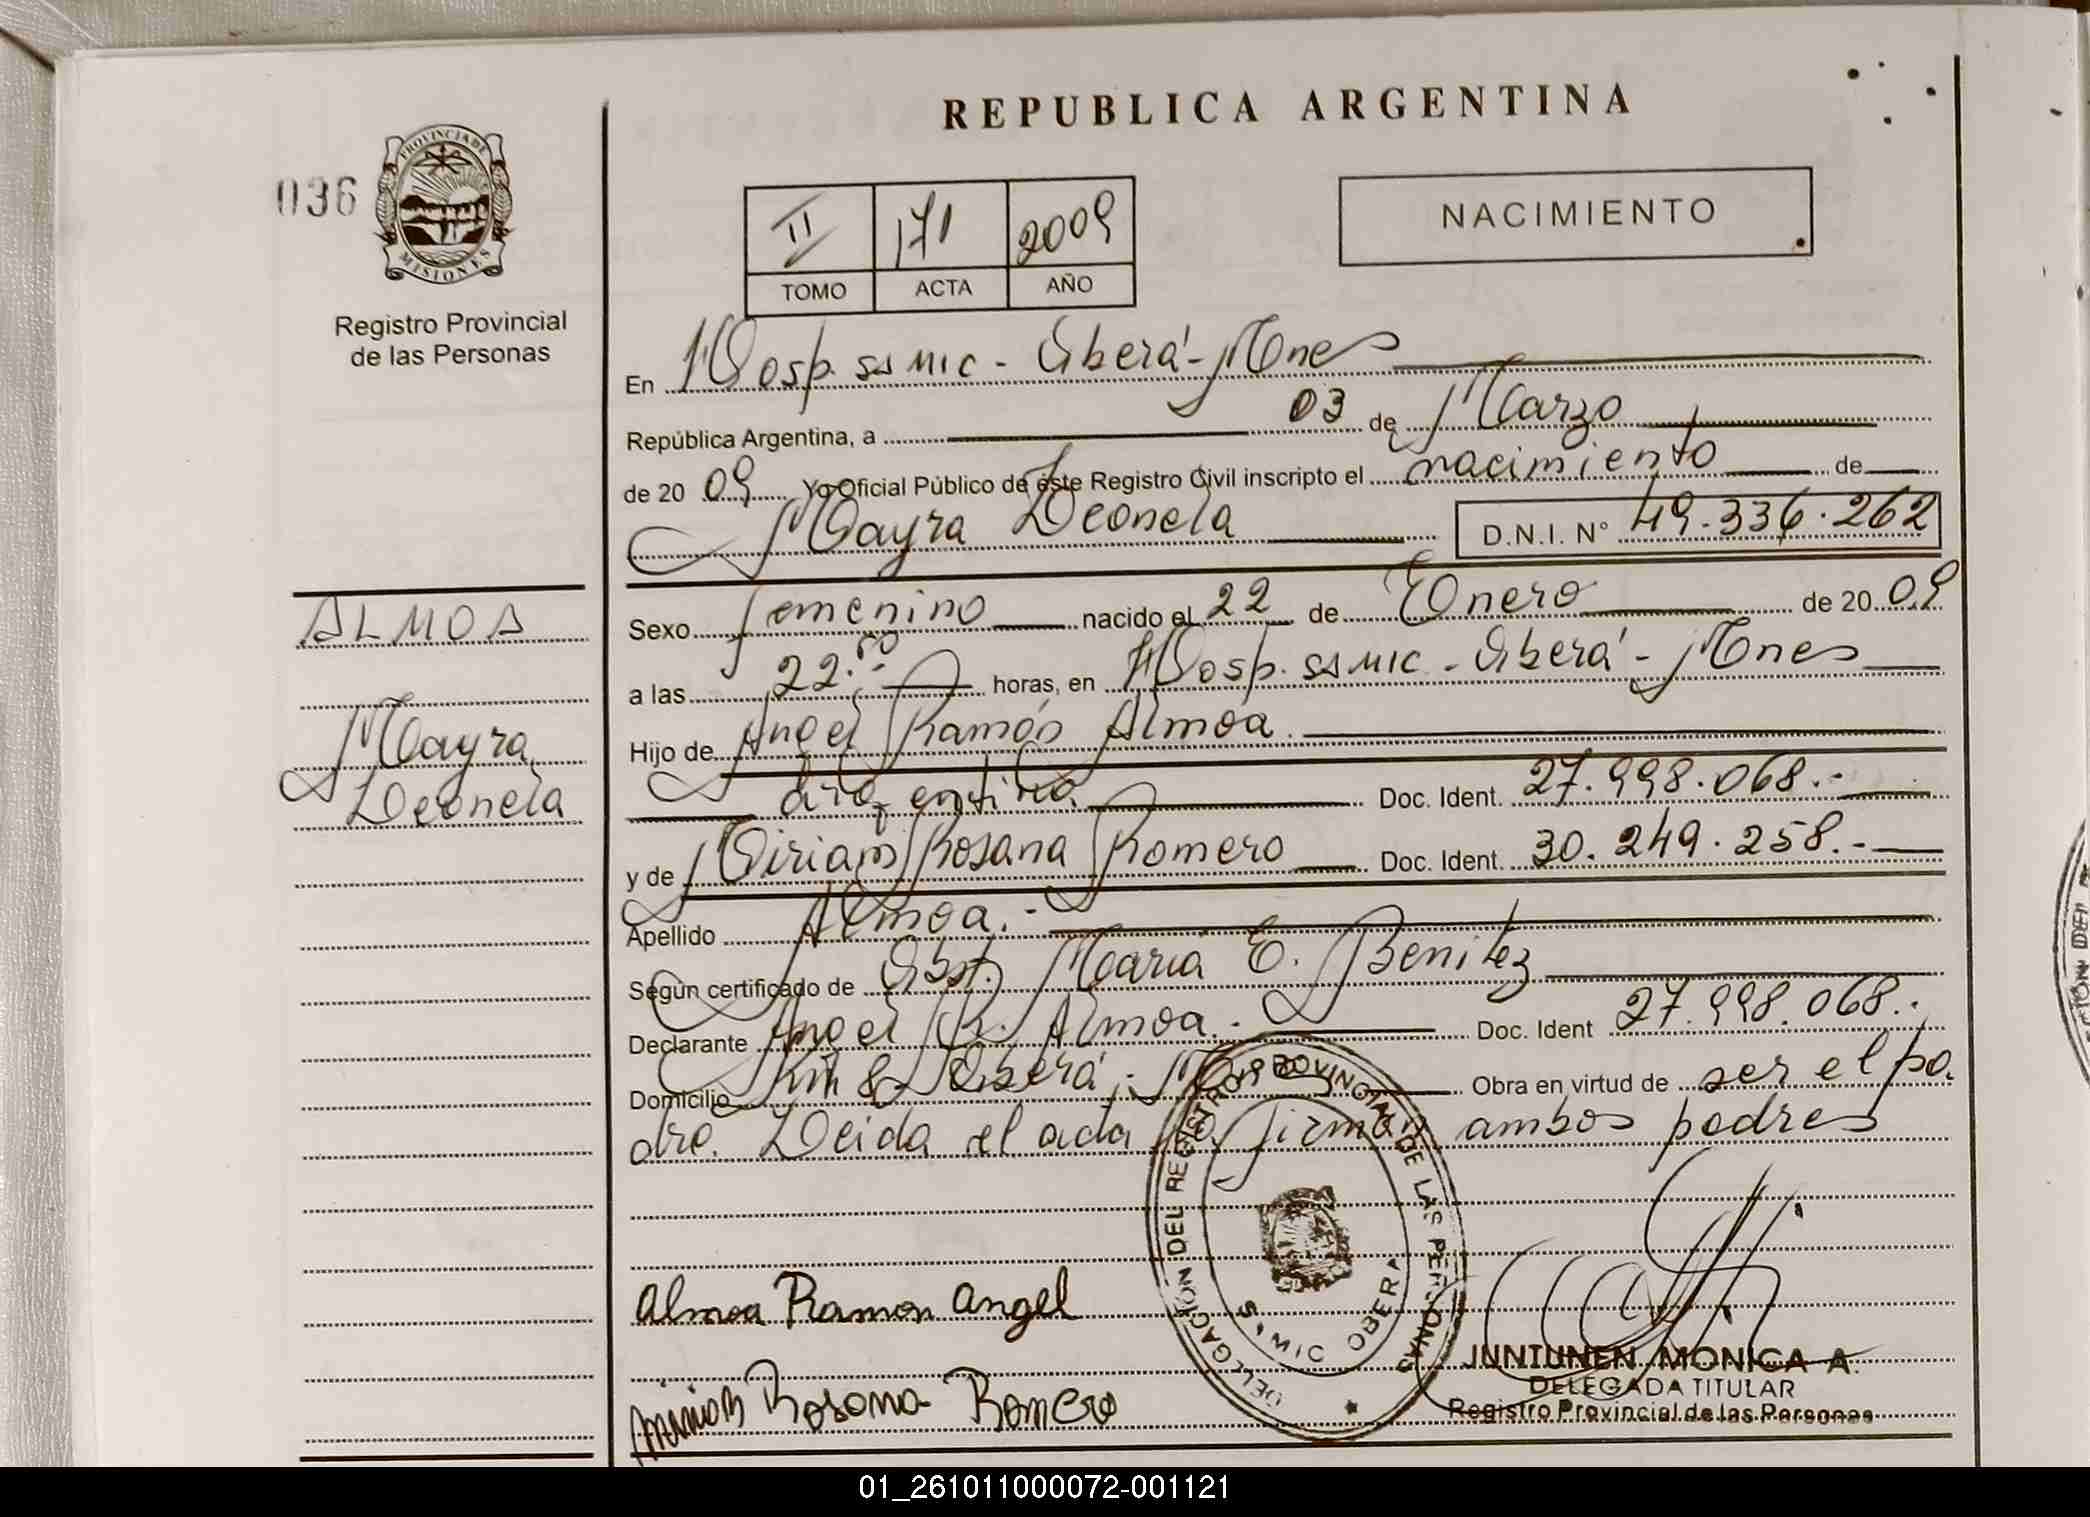 REPUBLICA ARGENTINA
036
PROVINCIA DE
MISIONES
Registro Provincial
de las Personas
NACIMIENTO
II 171 2009
TOMO ACTA AÑO
En Hosp. SAMIC - Oberá - Mnes
República Argentina, a 03 de Marzo
de 20 09 Yo Oficial Público de éste Registro Civil inscripto el nacimiento de
Mayra Leonela D.N.I. Nº 49.336.262
ALMOA
Mayra
Leonela
Sexo femenino nacido el 22 de Enero de 20 09
a las 22. horas, en Hosp. SAMIC - Oberá - Mnes
Hijo de Angel Ramón Almoa
argentina Doc. Ident. 27.998.068.-
y de Miriam Rosana Romero Doc. Ident. 30.249.258.-
Apellido Almoa.-
Según certificado de Obst. María E. Benitez
Declarante Angel R. Almoa.- Doc. Ident 27.998.068.-
Domicilio Km 8 Oberá, Obra en virtud de ser el pa
dre. Leida el acta la firman ambos padres
DELEGACIÓN DEL REGISTRO PROVINCIAL DE LAS PERSONAS
SAMIC OBERA
Almoa Ramon Angel
Miriam Rosana Romero
JUNTUNEN MONICA A.
DELEGADA TITULAR
Registro Provincial de las Personas
01_261011000072-001121